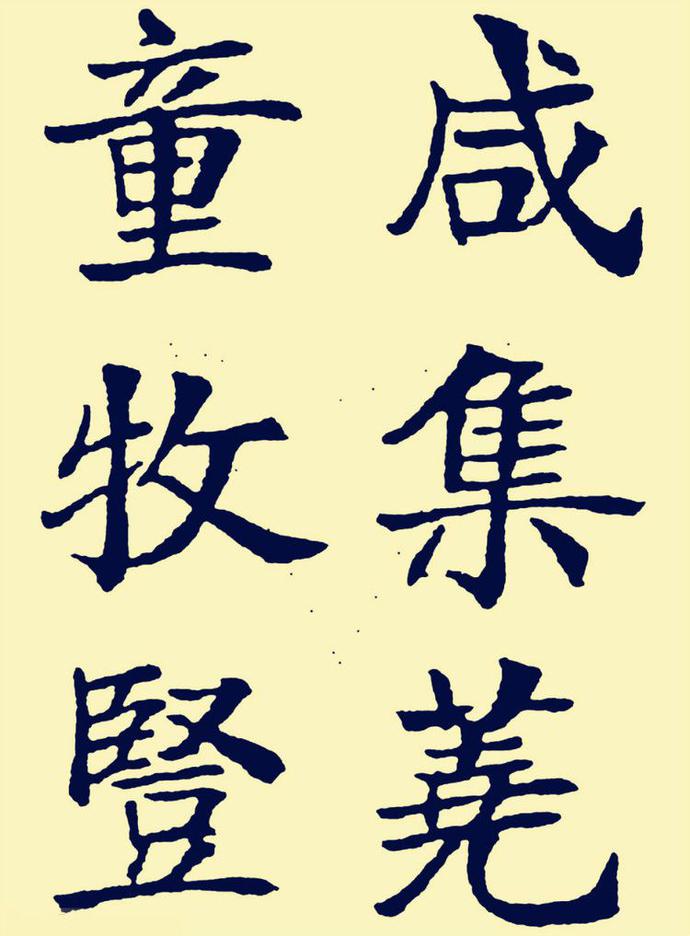 咸集蕘
童牧豎